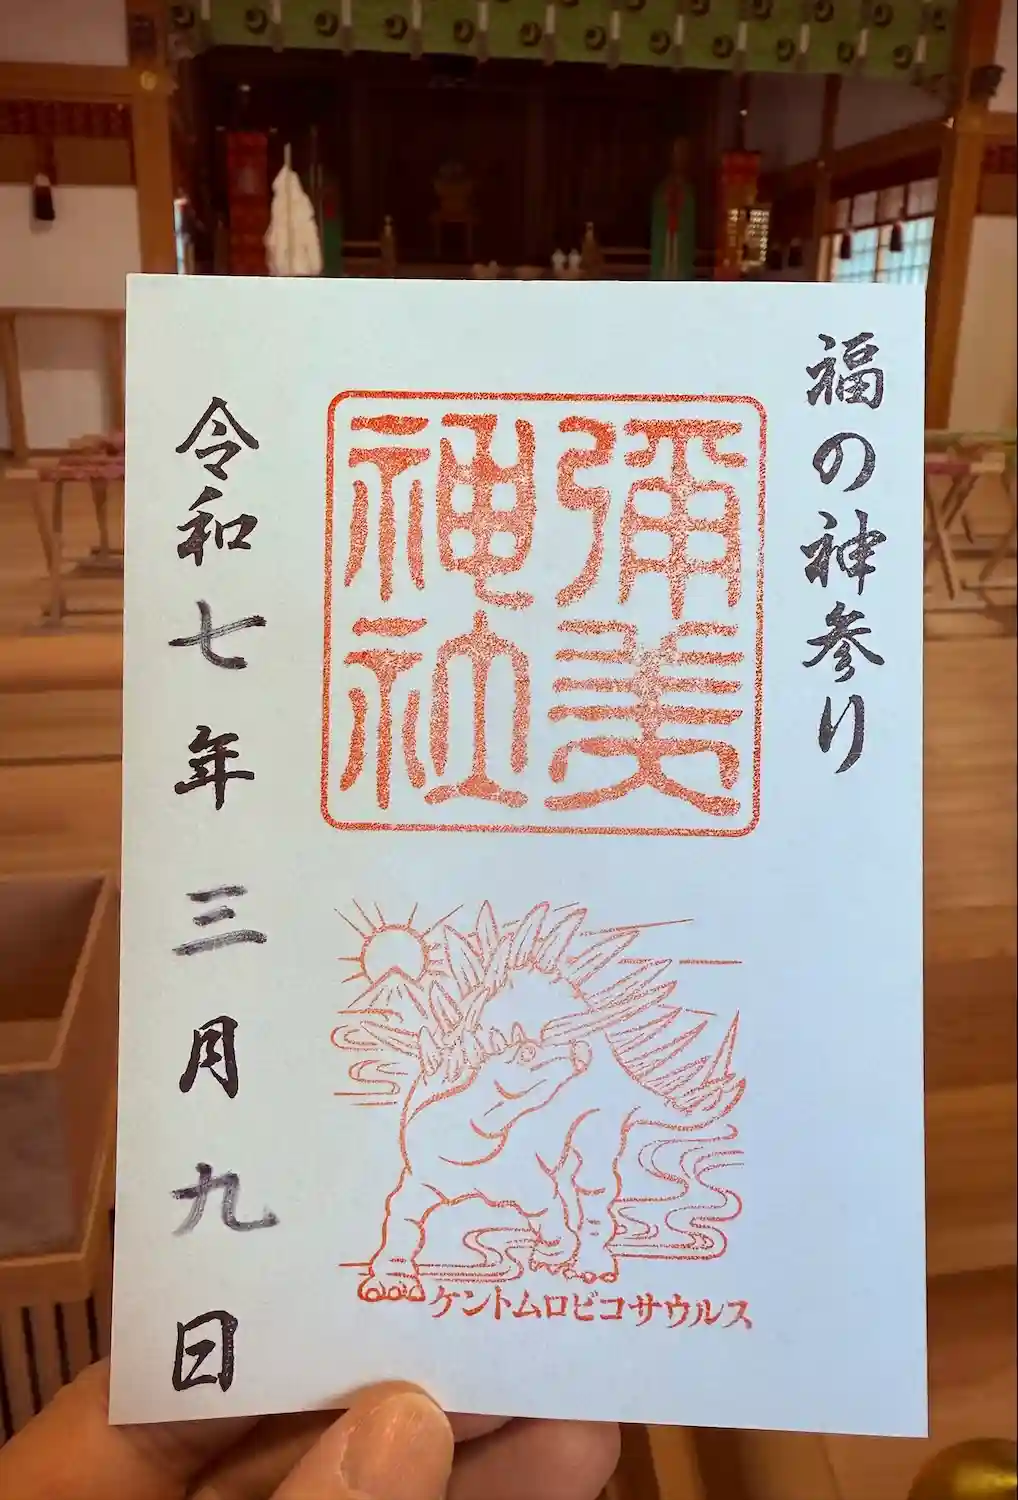 福の神参り
彌美
神社
ケントムロビコサウルス
令和七年三月九日